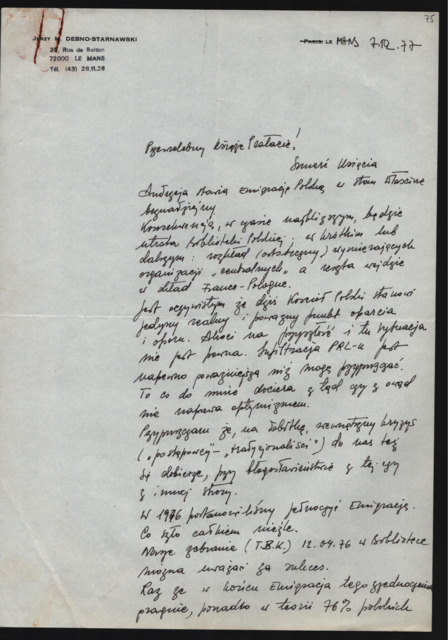 75
JERZY M. DEBNO-STARNAWSKI
28, Rue de Bolton
72000 LE MANS
Tél. (43) 28.11.28
PARIS LE MANS 7.12.77
Przewielebny Księże Prałacie!
Śmierć Księcia
Andrzeja stawia emigrację Polską w stan właściwie
beznadziejny
Konsekwencją, w czasie najbliższym, będzie
utrata Biblioteki Polskiej; w krótkim lub
dalszym: rozkład (ostateczny) wymierających
organizacji „centralnych" a reszta wejdzie
w skład France-Pologne.
Jest oczywistym że dziś Kościół Polski stanowi
jedyny realny i poważny punkt oparcia
i oporu. Ale i na przyszłość i tu sytuacja
nie jest pewna. Infiltracja PRL-u jest
napewno poważniejsza niż mogą przypuszczać.
To co do mnie dociera z tąd czy z owąd
nie napawa optymizmem.
Przypuszczam że, na dobitkę, wewnętrzny kryzys
(„postępowcy" - „tradycjonaliści") do nas też
się dobierze, przy błogosławieństwie z tej czy
z innej strony.
W 1976 postanowiliśmy jednoczyć Emigrację.
Co szło całkiem nieźle.
Nasze zebranie (T.B.K.) 12.09.76 w Bibliotece
można uważać za sukces.
Raz że w końcu Emigracja tego zjednoczenia
pragnie, ponadto w teorii 76% polskich